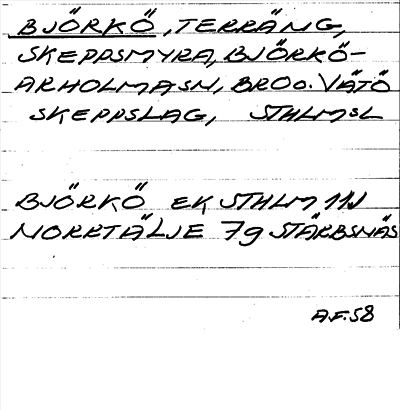 BJÖRKÖ, TERRÄNG,
SKEPPSMYRA, BJÖRKÖ-
ARHOLMASN, BRO o. VÄTÖ
SKEPPSLAG, STHLMSL
BJÖRKÖ EK STHLM 11N
NORRTÄLJE 7g STÄRBSNÄS
A.F.58